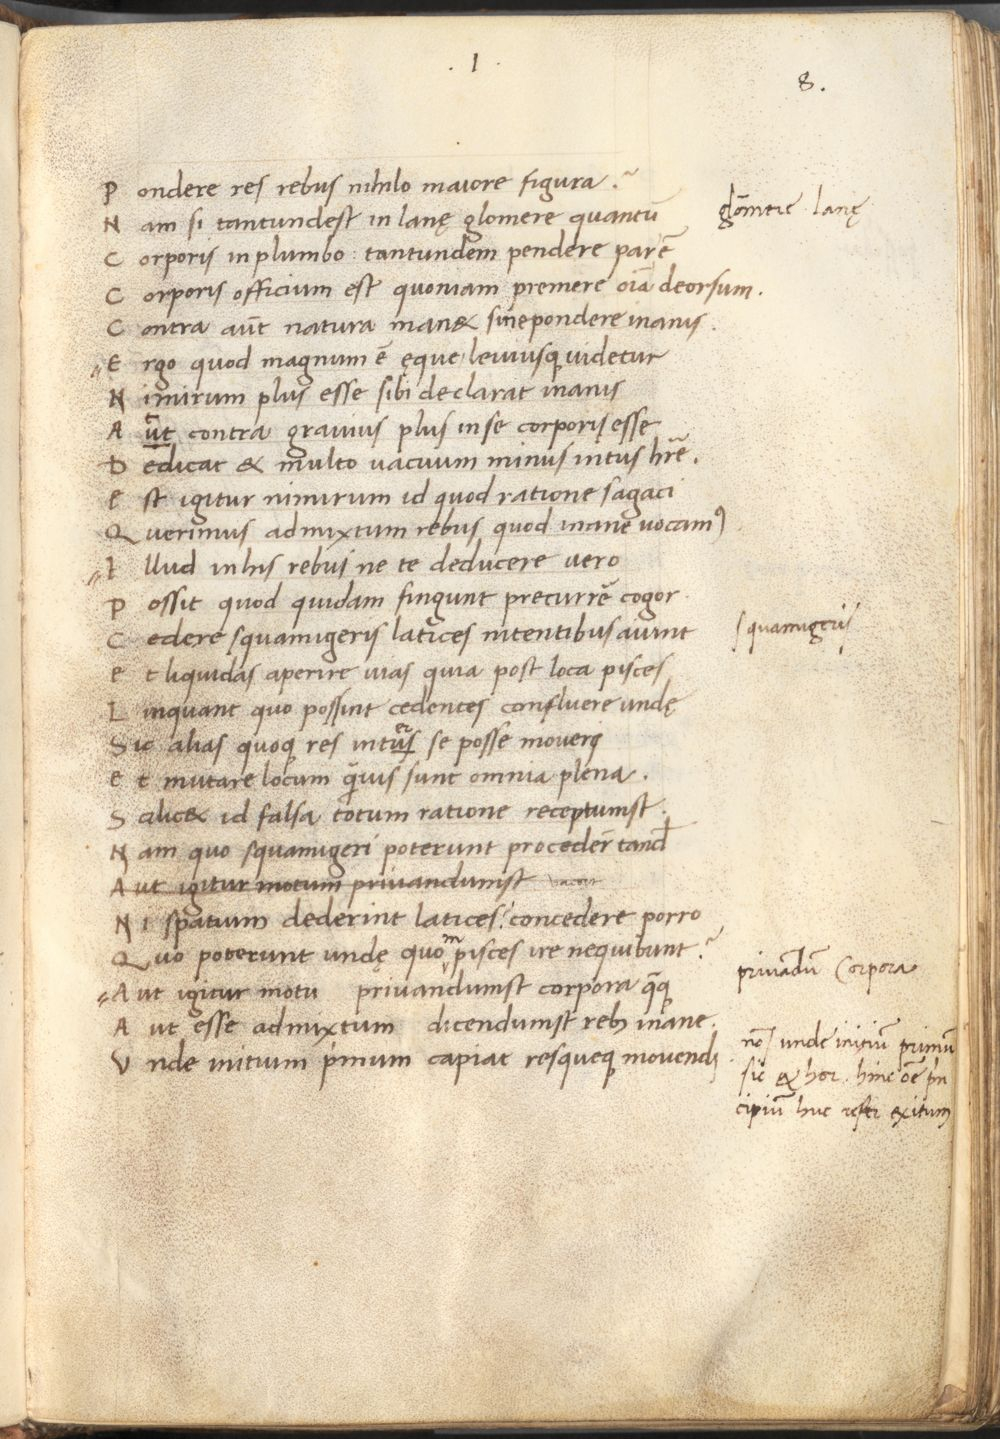 . I .
8.
P ondere res rebus nihilo maiore figura .
N am si tantundest in lanę glomere quantū
glōmere lanę
C orporis in plumbo : tantundem pendere par ē
C orporis officium est quoniam premere oīa deorsum .
C ontra aūt natura manet sine pondere inanis .
E rgo quod magnum ē ęque leviusque videtur
N imirum plus esse sibi declarat inanis
A ut contra gravius plus in se corporis esse
D edicat & multo vacuum minus intus hr̄e .
E st igitur nimirum id quod ratione sagaci
Q verimus admixtum rebus quod inane vocamꝰ
I llud in his rebus ne te deducere vero
P ossit quod quidam fingunt precurrē cogor
C edere squamigeris latices nitentibus aiunt
squamigeris
E t liquidas aperire vias quia post loca pisces
L inquant quo possint cedentes confluere undę
S ic alias quoque res inter se posse moveri
E t mutare locum q̄vis sunt omnia plena .
S cilicet id falsa totum ratione receptumst .
N am quo squamigeri poterunt procedēr tand
A ut igitur motum privandumst vacat
N i spatium dederint latices : concedere porro
Q uo poterunt undę quom pisces ire nequibunt ?
A ut igitur motu privandumst corpora q̄que
privādū Corpora
A ut esse admixtum dicendumst reb inane .
V nde initium primum capiat resqueque movendi
no unde initiū primū
sic & hor . hinc oē prin
cipiū huc refer exitum